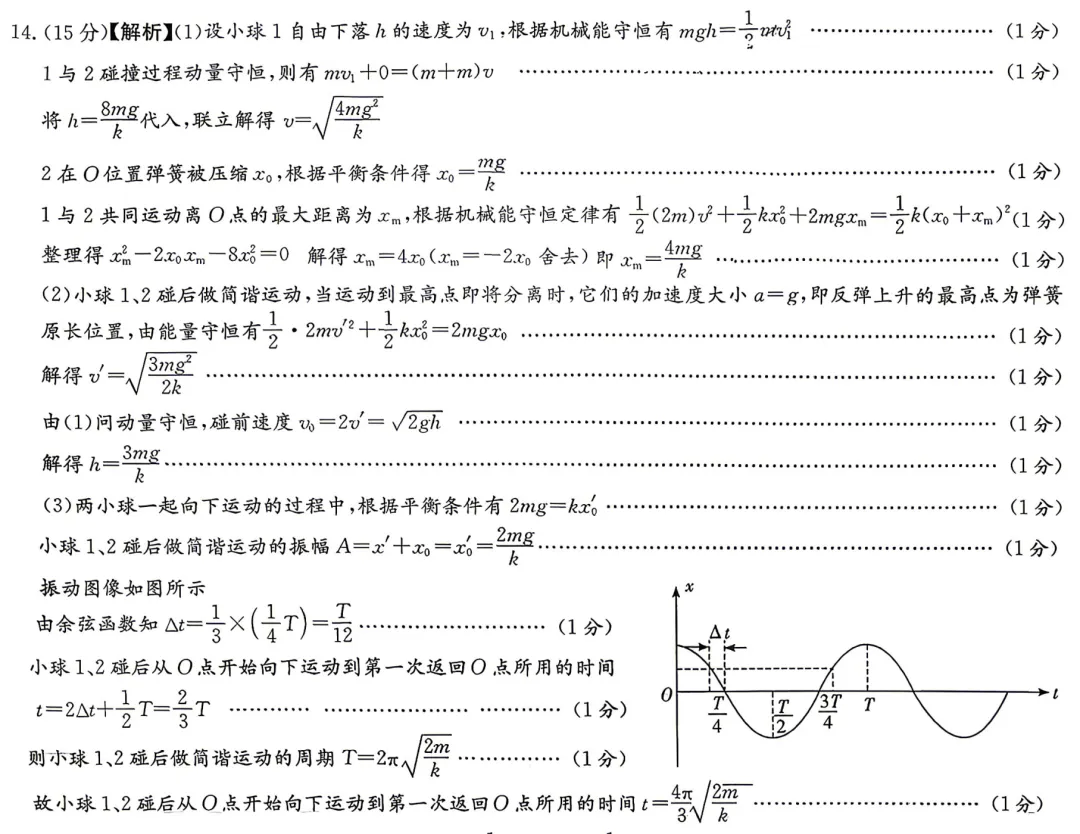 14. (15分)【解析】(1)设小球1自由下落h的速度为v₁,根据机械能守恒有mgh=\frac{1}{2}mv₁² ………………………(1分)
1与2碰撞过程动量守恒,则有mv₁+0=(m+m)v ………………………(1分)
将h=\frac{8mg}{k}代入,联立解得v=\sqrt{\frac{4mg²}{k}}
2在O位置弹簧被压缩x₀,根据平衡条件得x₀=\frac{mg}{k} ………………………(1分)
1与2共同运动离O点的最大距离为xₘ,根据机械能守恒定律有\frac{1}{2}(2m)v²+\frac{1}{2}kx₀²+2mgxₘ=\frac{1}{2}k(x₀+xₘ)²(1分)
整理得xₘ²-2x₀xₘ-8x₀²=0 解得xₘ=4x₀(xₘ=-2x₀舍去)即xₘ=\frac{4mg}{k} ………………………(1分)
(2)小球1、2碰后做简谐运动,当运动到最高点即将分离时,它们的加速度大小a=g,即反弹上升的最高点为弹簧
原长位置,由能量守恒有\frac{1}{2}·2mv′²+\frac{1}{2}kx₀²=2mgx₀ ………………………(1分)
解得v′=\sqrt{\frac{3mg²}{2k}} ………………………(1分)
由(1)问动量守恒,碰前速度v₀=2v′=\sqrt{2gh} ………………………(1分)
解得h=\frac{3mg}{k} ………………………(1分)
(3)两小球一起向下运动的过程中,根据平衡条件有2mg=kx₀′ ………………………(1分)
小球1、2碰后做简谐运动的振幅A=x′+x₀=x₀′=\frac{2mg}{k} ………………………(1分)
振动图像如图所示
由余弦函数知Δt=\frac{1}{3}×(\frac{1}{4}T)=\frac{T}{12} ………………………(1分)
小球1、2碰后从O点开始向下运动到第一次返回O点所用的时间
t=2Δt+\frac{1}{2}T=\frac{2}{3}T ………………………(1分)
则小球1、2碰后做简谐运动的周期T=2π\sqrt{\frac{2m}{k}} ……………(1分)
故小球1、2碰后从O点开始向下运动到第一次返回O点所用的时间t=\frac{4π}{3}\sqrt{\frac{2m}{k}} ………………………(1分)
x
Δt
O \frac{T}{4} \frac{T}{2} \frac{3T}{4} T t